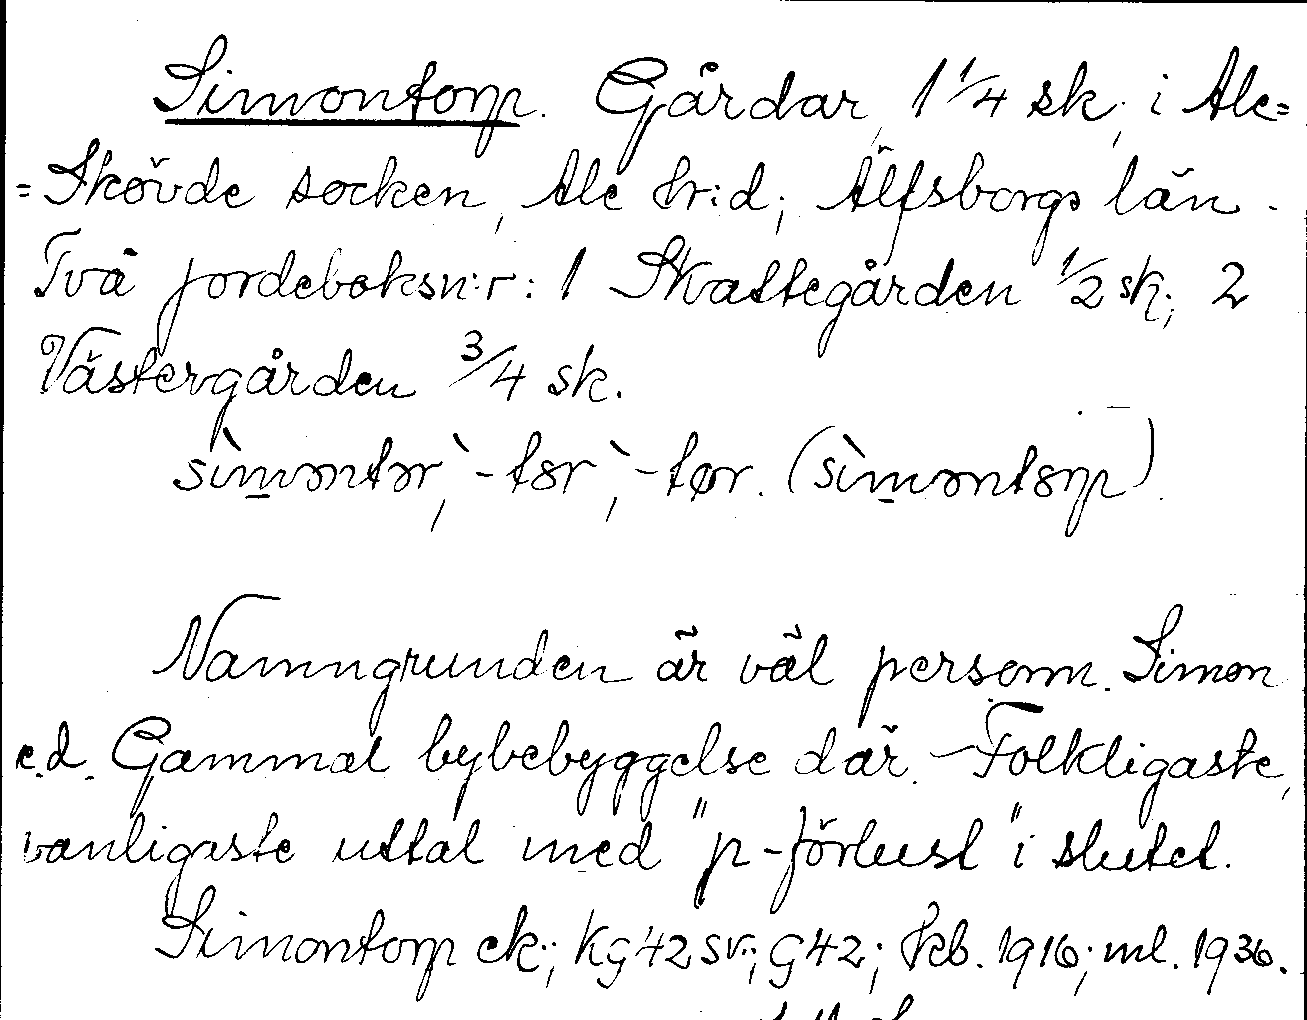 Simontorp. Gårdar, 1 1/4 sk, i Ale=
=Skövde socken, Ale hr:d, Älfsborgs län.
Två jordeboksn:r: 1 Skattegården 1/2 sk; 2
Västergården 3/4 sk.
sìmɷntɷr, -tɞr, -tør. (sìmɷntɞrp).
Namngrunden är väl personn. Simon
e.d. Gammal bybebyggelse där. – Folkligaste,
vanligaste uttal med "p-förlust" i slutet.
Simontorp ek.; Kg 42 sv.; G 42; kb. 1916; ml. 1936.